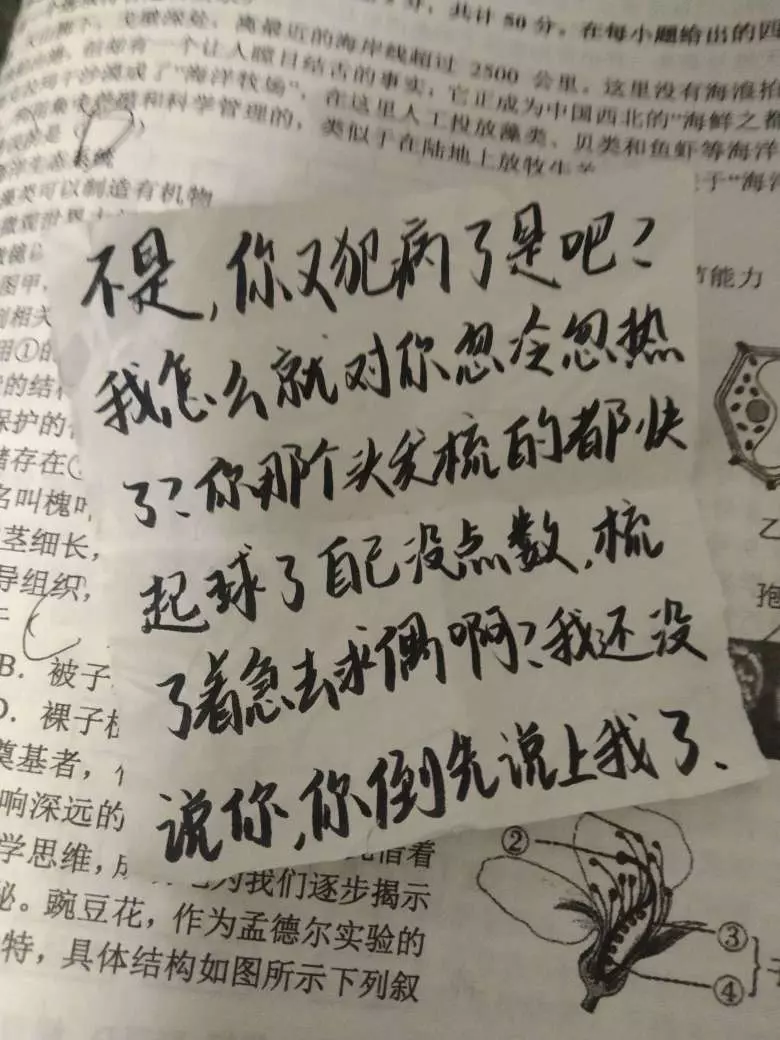 分，共计 50 分。在每小题给出的四
离最近的海岸线超过 2500 公里。这里没有海浪拍
有一个让人瞠目结舌的事实：它正成为中国西北的“海鲜之都
沙漠成了“海洋牧场”，在这里人工投放藻类、贝类和鱼虾等海洋
和科学管理的，类似于在陆地上放牧牛羊
于“海洋
藻类可以制造有机物
微观世界
图甲
节能力
不是，你又犯病了是吧？
我怎么就对你忽冷忽热
了？你那个头发梳的都快
起球了自己没点数，梳
了着急去求偶啊？我还没
说你，你倒先说上我了、
到相关
用①的
的结构
保护的
储存在
名叫槐叶
茎细长，
导组织，
乙
孢
B．被子
D．裸子植
奠基者，
响深远的
学思维，
为我们逐步揭示
秘。豌豆花，作为孟德尔实验的
特，具体结构如图所示下列叙
②
③
④